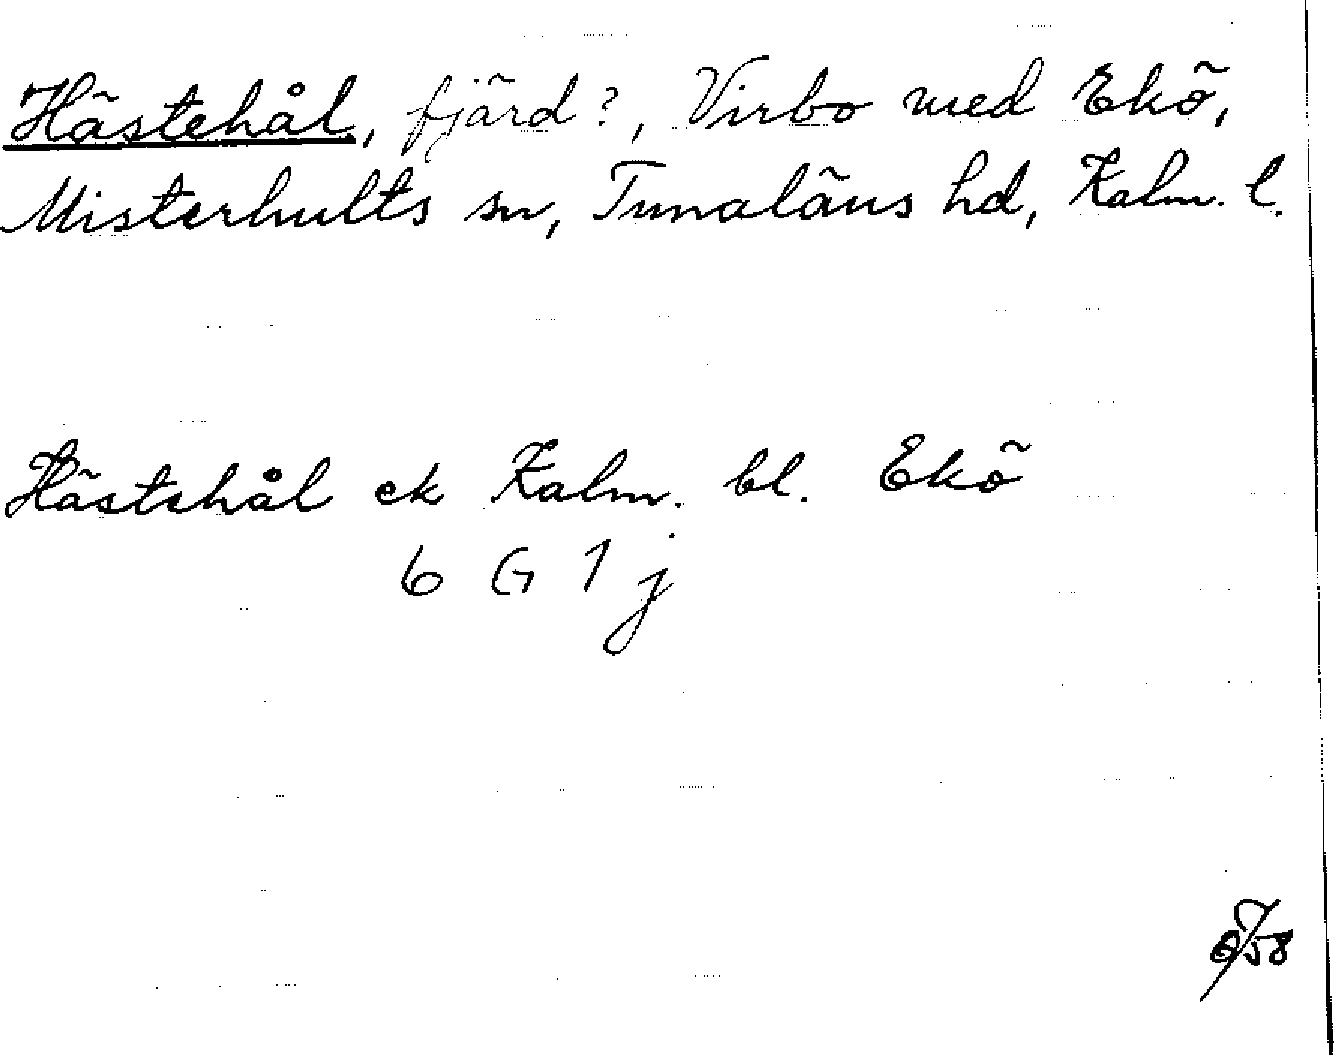 Hästehål, fjärd?, Virbo med Ekö,
Misterhults sn, Tunaläns hd, Kalm. l.
Hästehål ek Kalm. bl. Ekö
6 G 1 j